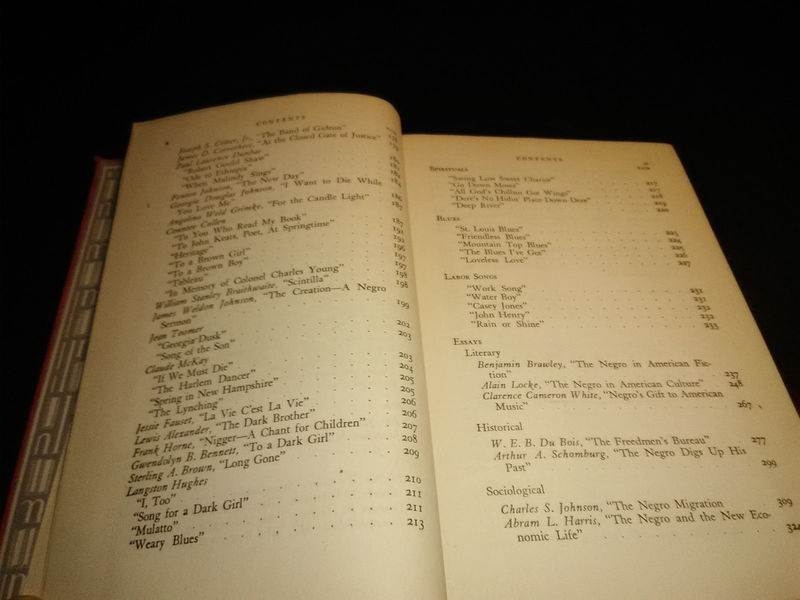 CONTENTS
Joseph S. Cotter, Jr., "The Band of Gideon"
James D. Corrothers, "At the Closed Gate of Justice"
Paul Laurence Dunbar
"Robert Gould Shaw"
"Ode to Ethiopia"
"When Malindy Sings"
Fenton Johnson, "The New Day"
Georgia Douglas Johnson, "I Want to Die While
You Love Me"
Angelina Weld Grimke, "For the Candle Light"
Countee Cullen
"To You Who Read My Book" 187
"To John Keats, Poet, At Springtime" 191
"Heritage" 192
"To a Brown Girl" 196
"To a Brown Boy" 197
"Tableau" 197
"In Memory of Colonel Charles Young" 198
William Stanley Braithwaite, "Scintilla" 198
James Weldon Johnson, "The Creation—A Negro
Sermon" 199
Jean Toomer
"Georgia Dusk" 202
"Song of the Son" 203
Claude McKay
"If We Must Die" 203
"The Harlem Dancer" 204
"Spring in New Hampshire" 205
"The Lynching" 205
Jessie Fauset, "La Vie C'est La Vie" 206
Lewis Alexander, "The Dark Brother" 206
Frank Horne, "Nigger—A Chant for Children" 207
Gwendolyn B. Bennett, "To a Dark Girl" 208
Sterling A. Brown, "Long Gone" 209
Langston Hughes
"I, Too" 210
"Song for a Dark Girl" 211
"Mulatto" 211
"Weary Blues" 213
CONTENTS
PAGE
SPIRITUALS
"Swing Low Sweet Chariot" 217
"Go Down Moses" 217
"All God's Chillun Got Wings" 218
"Dere's No Hidin' Place Down Dere" 219
"Deep River" 220
BLUES
"St. Louis Blues" 223
"Friendless Blues" 224
"Mountain Top Blues" 225
"The Blues I've Got" 226
"Loveless Love" 227
LABOR SONGS
"Work Song" 231
"Water Boy" 231
"Casey Jones" 232
"John Henry" 232
"Rain or Shine" 233
ESSAYS
Literary
Benjamin Brawley, "The Negro in American Fic-
tion" 237
Alain Locke, "The Negro in American Culture" 248
Clarence Cameron White, "Negro's Gift to American
Music" 267
Historical
W. E. B. Du Bois, "The Freedmen's Bureau" 277
Arthur A. Schomburg, "The Negro Digs Up His
Past" 299
Sociological
Charles S. Johnson, "The Negro Migration 309
Abram L. Harris, "The Negro and the New Eco-
nomic Life"